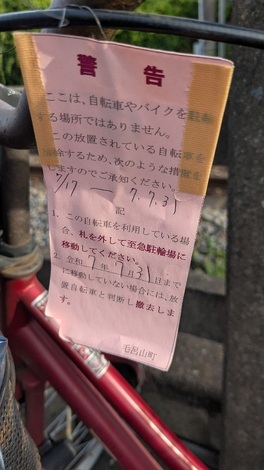 警告
ここは、自転車やバイクを駐輪
する場所ではありません。
この放置されている自転車を
解除するため、次のような措置を
しますのでご承知ください。
7/17 ― 7.7.31
記
1、この自転車を利用している場
合、札を外して至急駐輪場に
移動してください。
2、令和7年7月31日まで
に移動していない場合には、放
置自転車と判断し撤去しま
す。
毛呂山町